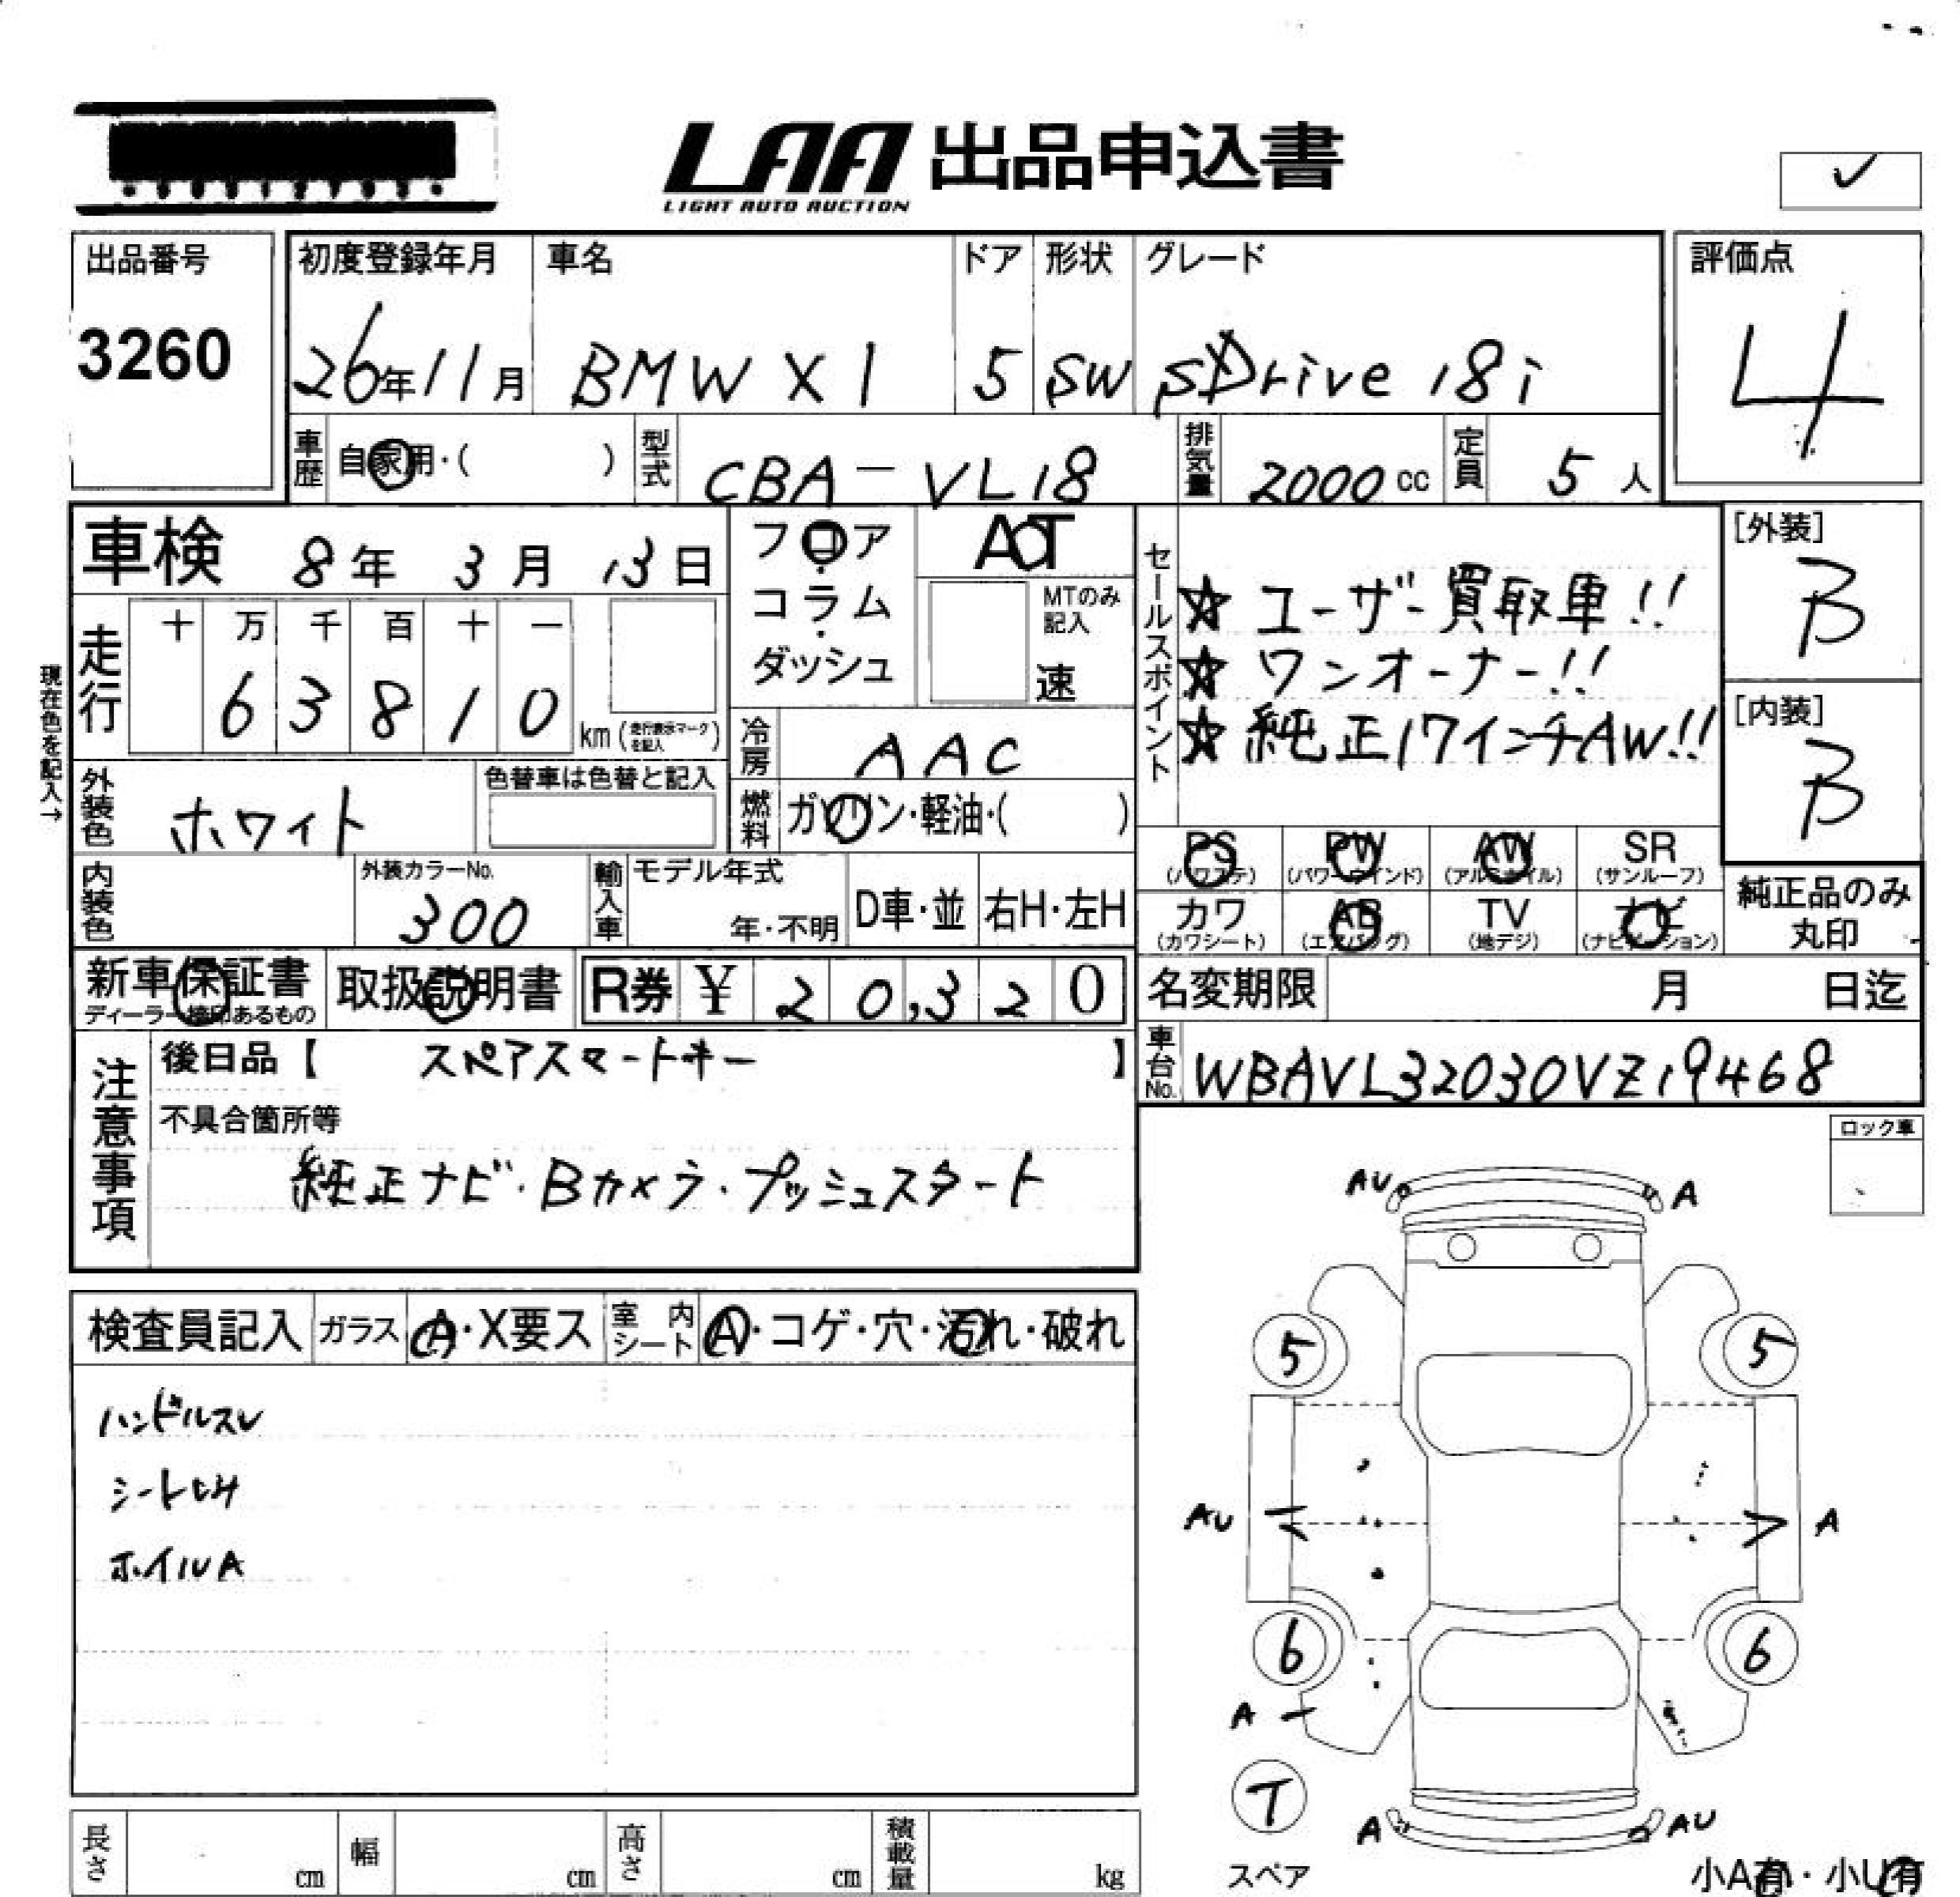 LAA 出品申込書
LIGHT AUTO AUCTION
✓
出品番号
3260
初度登録年月 車名 ドア 形状 グレード
26年11月 BMW X1 5 SW sDrive 18i
評価点
4
車歴 自家用・( ) 型式 CBA-VL18 排気量 2000cc 定員 5人
車検 8年 3月 13日
フロア・コラム・ダッシュ
AT
MTのみ記入
速
走行 十 万 千 百 十 一
6 3 8 1 0 km (走行表示マークを記入)
現在色を記入→
冷房 AAC
外装色 ホワイト
色替車は色替と記入
燃料 ガソリン・軽油・( )
セールスポイント
☆ ユーザー買取車!!
☆ ワンオーナー!!
☆ 純正17インチAW!!
[外装]
B
[内装]
B
PS (パワステ) PW (パワーウインド) AW (アルミホイル) SR (サンルーフ)
カワ (カワシート) AB (エアバッグ) TV (地デジ) ナビ (ナビゲーション)
純正品のみ丸印
内装色 外装カラーNo. 300 輸入車 モデル年式 年・不明 D車・並 右H・左H
新車保証書 ディーラー捺印あるもの 取扱説明書 R券 ¥ 20,320
名変期限 月 日迄
車台No. WBAVL32030VZ19468
注意事項
後日品【 スペアスマートキー 】
不具合箇所等
純正ナビ・Bカメラ・プッシュスタート
ロック車
検査員記入 ガラス A・X要ス 室内シート A・コゲ・穴・汚れ・破れ
ハンドルスレ
シートヒカ
ホイルA
AU A
5 5
AU A
6 6
A
T
スペア
A AU
小A有・小U有
長さ cm 幅 cm 高さ cm 積載量 kg